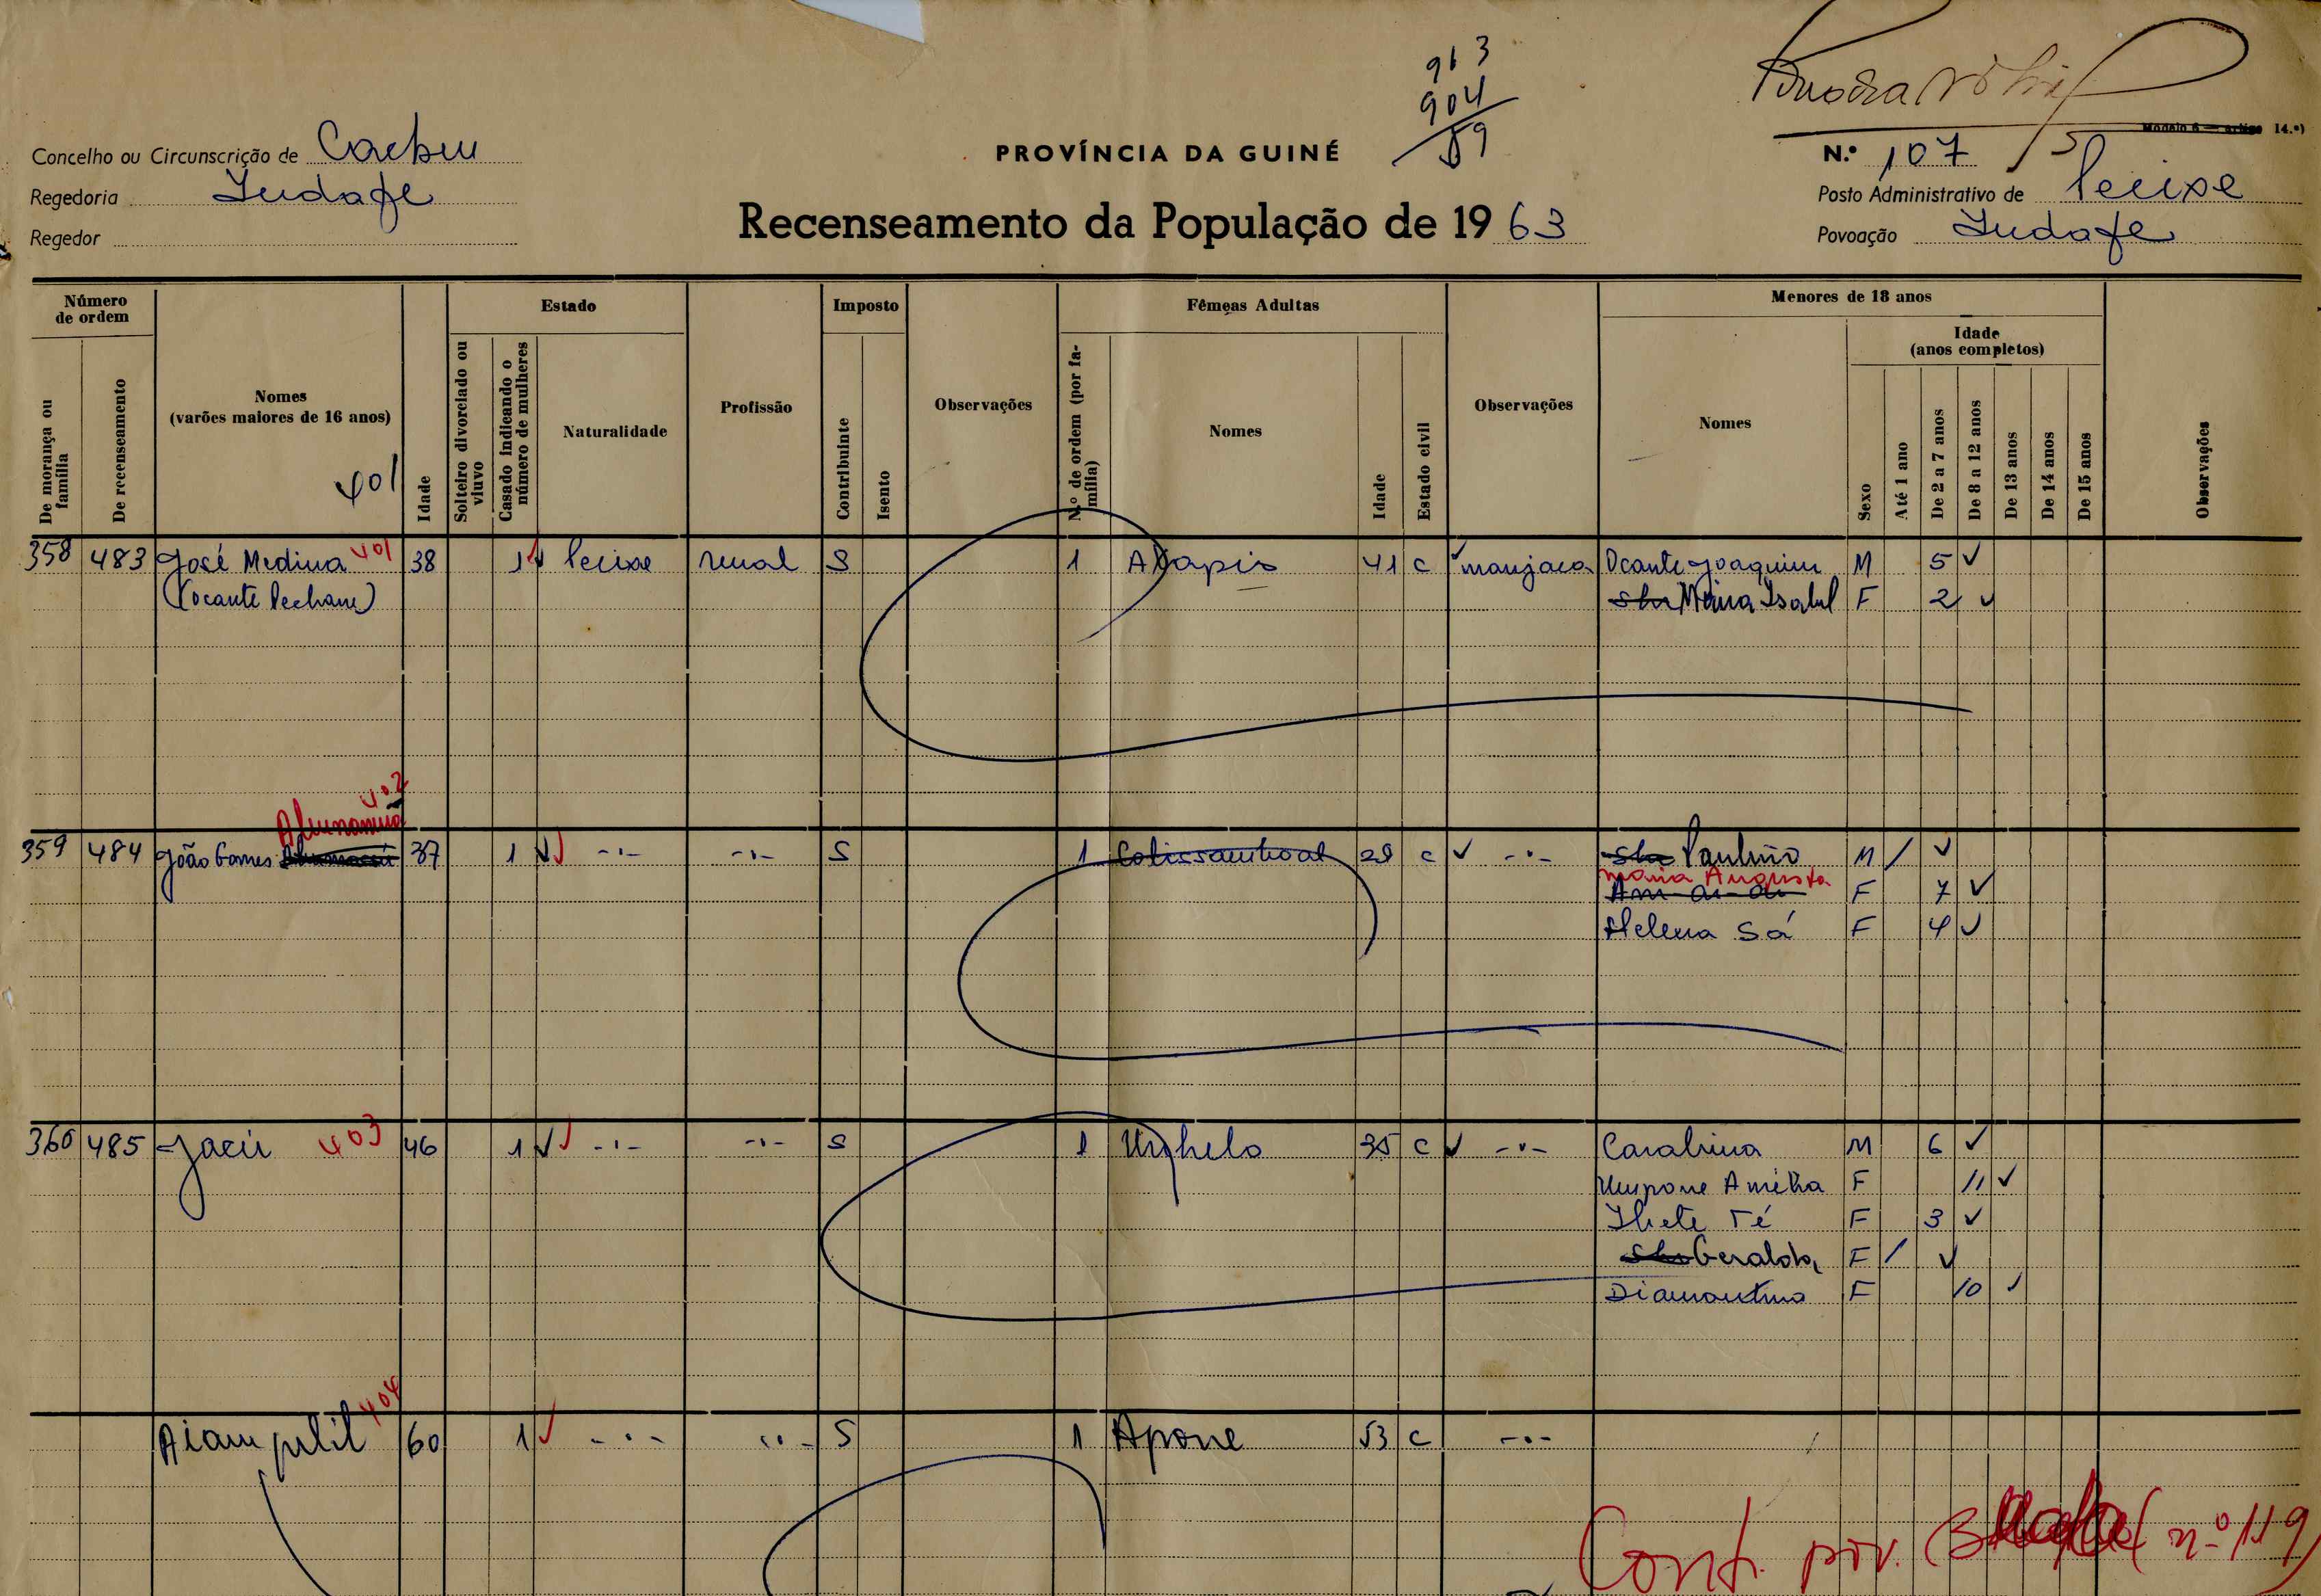 963
904
59
Modelo 6 — Artigo 14.º)
Concelho ou Circunscrição de Cacheu
PROVÍNCIA DA GUINÉ
N.º 107
Regedoria Indafe
Posto Administrativo de Pecixe
Regedor
Recenseamento da População de 1963
Povoação Indafe
Número de ordem
De morança ou família
De recenseamento
Nomes
(varões maiores de 16 anos)
401
Idade
Estado
Solteiro divorciado ou viuvo
Casado indicando o número de mulheres
Naturalidade
Profissão
Imposto
Contribuinte
Isento
Observações
Fêmeas Adultas
N.º de ordem (por família)
Nomes
Idade
Estado civil
Observações
Menores de 18 anos
Nomes
Sexo
Idade
(anos completos)
Até 1 ano
De 2 a 7 anos
De 8 a 12 anos
De 13 anos
De 14 anos
De 15 anos
Observações
358 483 José Medina 401 38 1 Pecixe rural S 1 41 C manjaca Ocante Joaquim M 5
Maria Isabel F 2
402
359 484 João Gomes 37 1 -·- -·- S 1 C -·- Paulino M /
Maria Augusta F 7
Helena Sá F 4
360 485 Jacú 403 46 1 -·- -·- S 1 35 C -·- Carabina M 6
Umpone Amélia F 11
F 3
Geralda F /
Diamantina F 10
404
60 1 -·- -·- S 1 Apone 53 C -·-
Cont. pov. (nº 119)